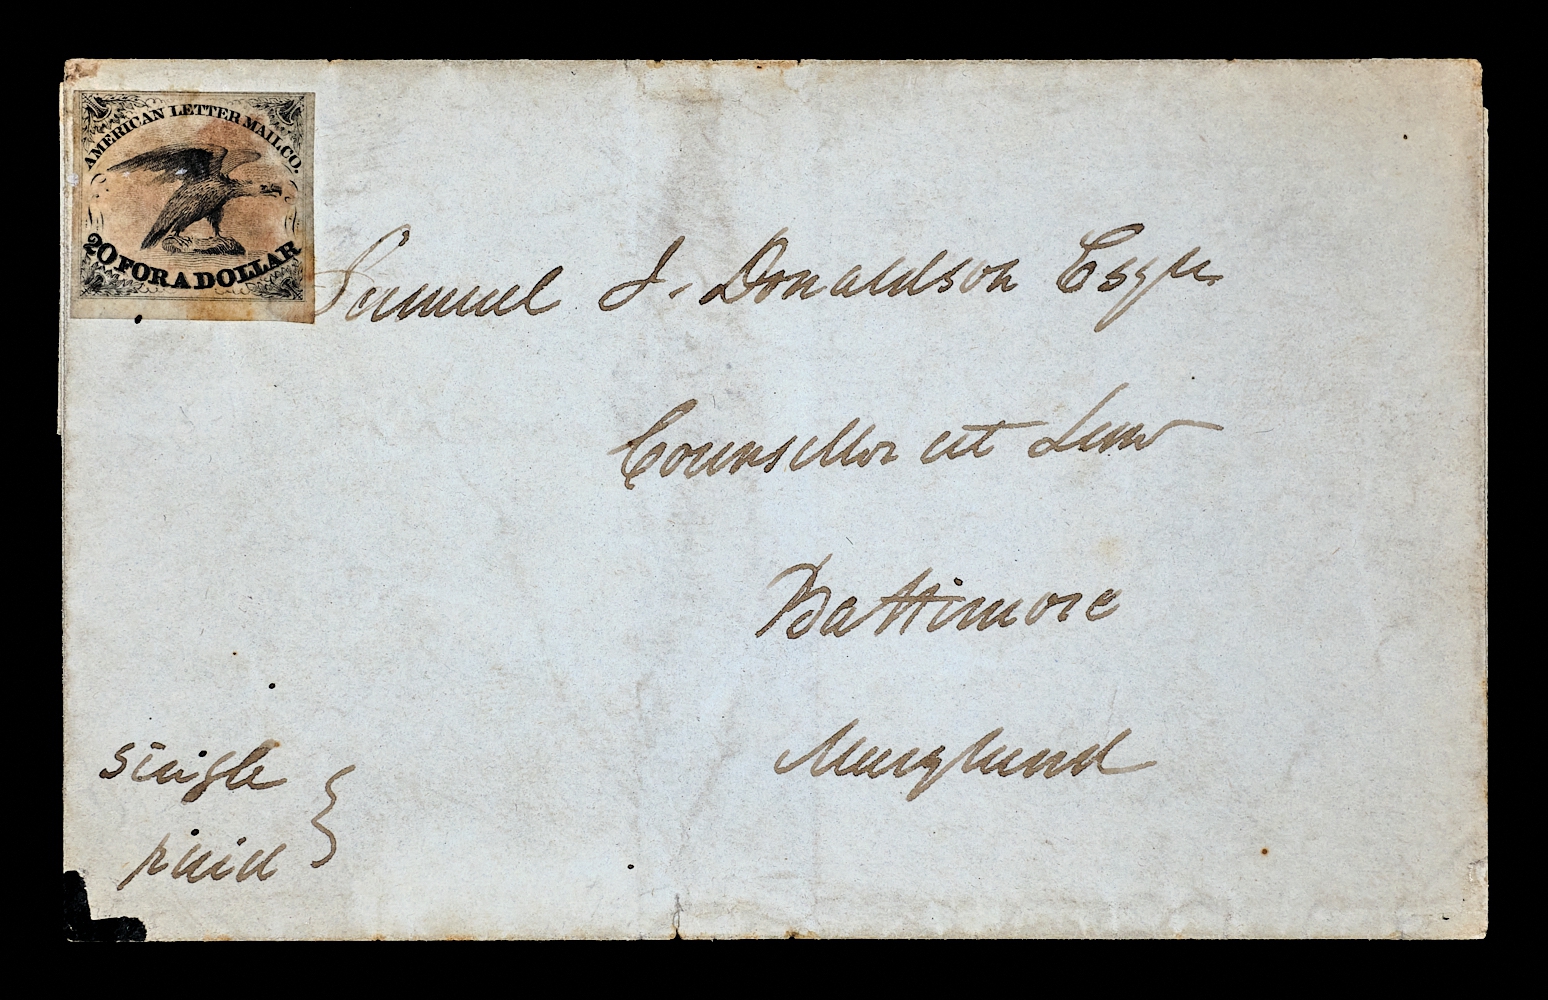 AMERICAN LETTER MAIL CO.
20 FOR A DOLLAR
Samuel J. Donaldson Esqr.
Counsellor at Law
Baltimore
Maryland
single
paid